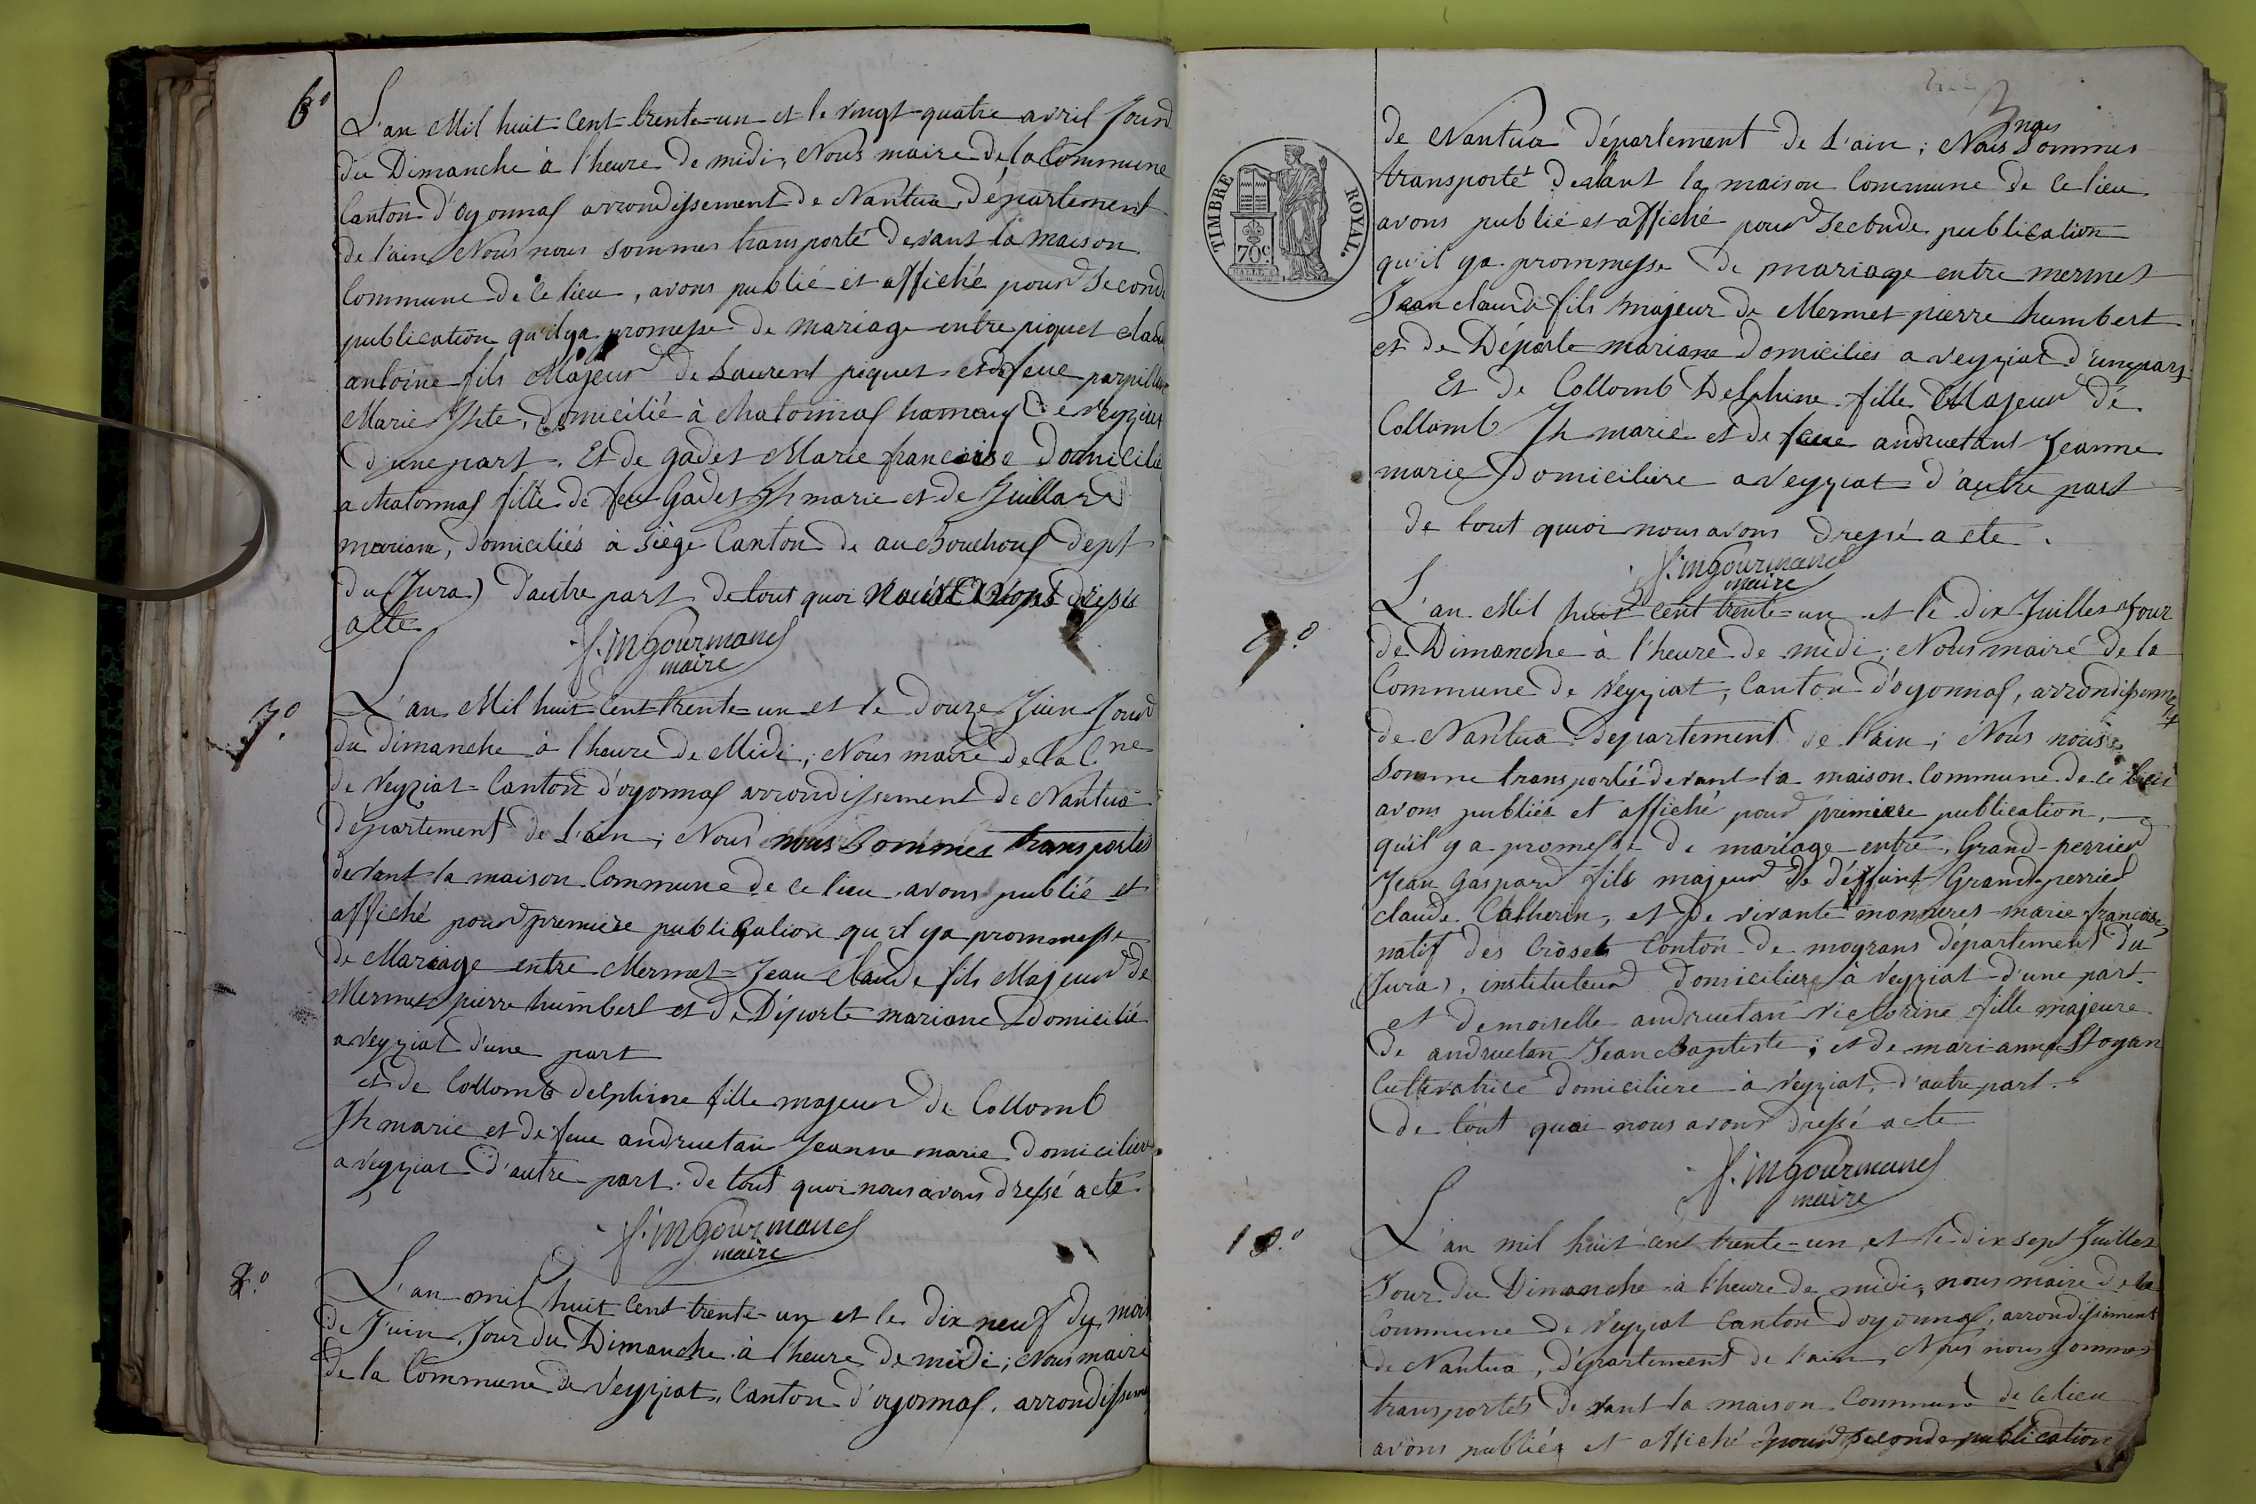 6°
L'an Mil huit Cent trente=un et le vingt-quatre avril Jour
du Dimanche à l'heure de midi, Nous maire de la Commune
Canton d'oyonnas arrondissement de Nantua, département
de l'ain, Nous nous sommes transporté devant la maison
Commune de ce lieu, avons publié et affiché pour Seconde
publication qu'il ya promesse de mariage entre piquet claude
antoine fils Majeur de Laurent piquet et de feue
Marie domicilié à chatonnas hameau de veyziat
d'une part. Et de gadet Marie francoise Domicilié
a chatonnas fille de feu Gadet Jh marie et de Juillard
mariane, domiciliés à Siège Canton de aubouchoux dept
du (Jura) d'autre part de tout quoi Nous avons dressé
acte
J. M gourmand
maire
7°
L'an Mil huit Cent trente=un et le Douze Juin Jour
du dimanche à l'heure de Midi; Nous maire de la Cne
de Veyziat Canton d'oyonnas arrondissement de Nantua
département de L'ain; Nous nous Sommes transportés
devant la maison Commune de ce lieu avons publié et
affiché pour premiere publication qu'il ya prommesse
de Mariage entre Mermet Jean Claude fils Majeur de
Mermet pierre humbert et de Déporte mariane domicilié
a veyziat d'une part
et de Collomb delphine fille majeur de Collomb
Jh marie et de feue andruetan Jeanne marie domiciliere
a veyziat d'autre part. de tout quoi nous avons dressé acte
J. M gourmand
maire
8.°
L'an mil huit Cent trente-un et le dix neuf du mois
de Juin, Jour du Dimanche à l'heure de midi; Nous maire
de la Commune de Veyziat, Canton d'oyonnas, arrondissement
TIMBRE ROYAL.
70c.
de Nantua département de L'ain; Nous nous Sommes
transporté devant la maison Commune de ce lieu
avons publié et affiché pour Seconde publication
qu'il ya prommesse de mariage entre mermet
Jean claude fils majeur de Mermet pierre humbert
et de Déporte mariane domiciliés a veyziat d'une part
Et de Collomb Delphine fille Majeur de
Collomb Jh marie et de feue andruetant Jeanne
marie domiciliere a veyziat d'autre part
de tout quoi nous avons dressé acte.
J. M gourmand
maire
9.°
L'an Mil huit cent trente=un et le dix Juillet Jour
de Dimanche à l'heure de midi; Nous maire de la
Commune de Veyziat, Canton d'oyonnas, arrondissement
de Nantua département de l'ain; Nous nous
Somme transportés devant la maison Commune de ce lieu
avons publiés et affiché pour premiere publication,
qu'il y a promesse de mariage entre, Grand-perrier
Jean Gaspard fils majeur de déffunt Grand-perrier
claude Catherin, et de vivante monneret marie francoise,
natif des Crosets Conton de moyrans département du
(Jura), instituteur domiciliere à Veyziat d'une part.
et demoiselle andruetan victorine fille majeure
de andruetan Jean Baptiste; et de mari-anne Stoyan
Cultivatrice domiciliere à veyziat, d'autre part.
de tout quoi nous avons dressé acte
J. M gourmand
maire
10.°
L'an mil huit cent trente=un, et le dix sept Juillet
Jour du Dimanche à l'heure de midi, nous maire de la
Commune de Veyziat Canton d'oyonnas, arrondissement
de Nantua, département de l'ain, Nous nous Sommes
transportés devant la maison Commune de ce lieu
avons publiés et affiché pour Seconde publication